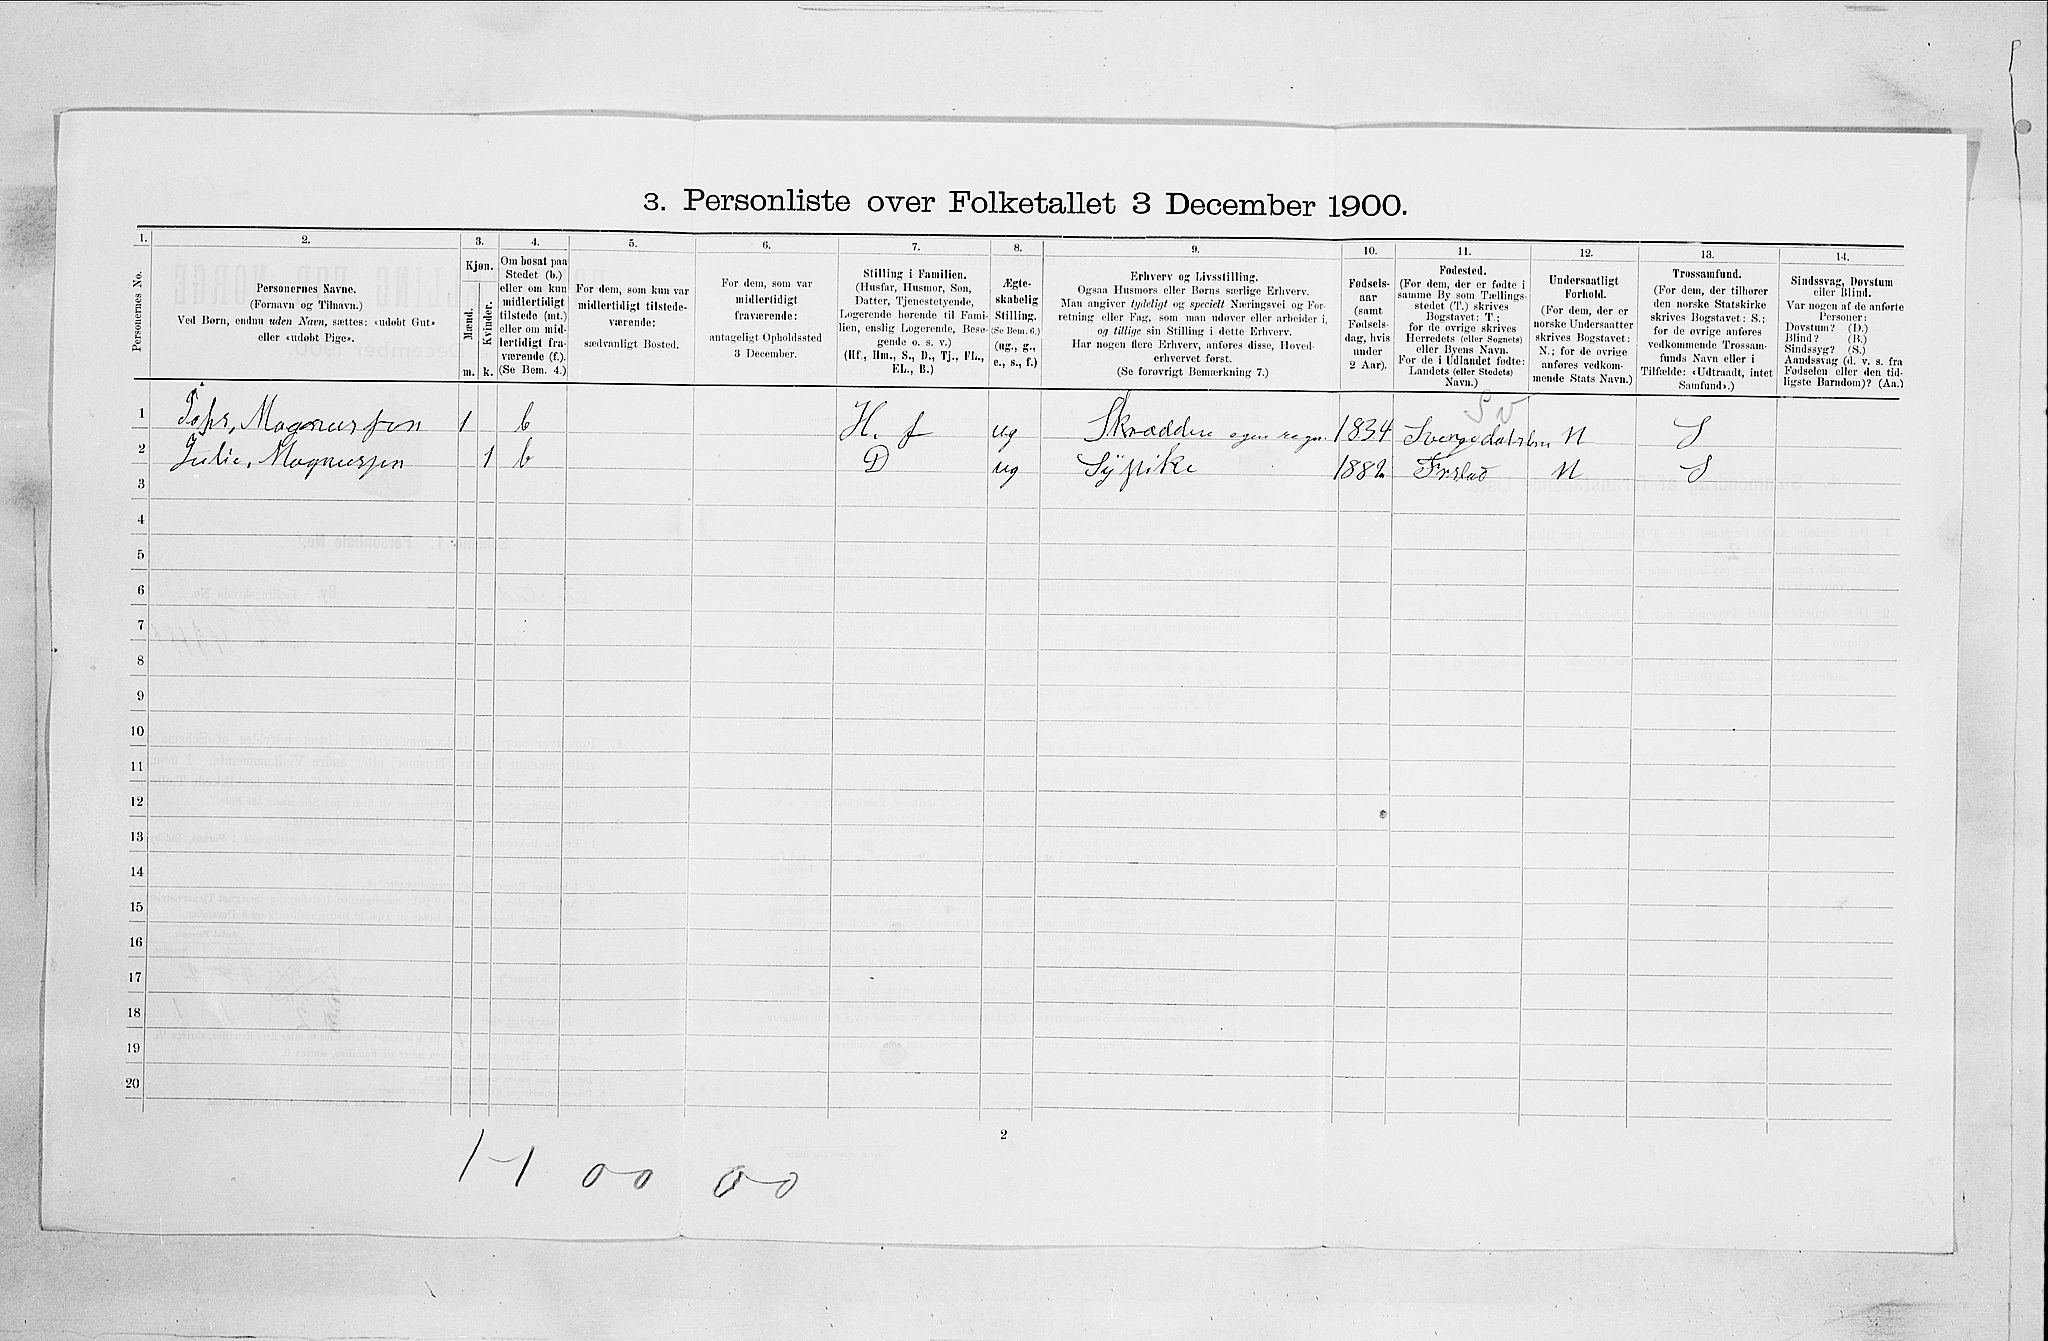 3. Personliste over Folketallet 3 December 1900.
1. 2. 3. 4. 5. 6. 7. 8. 9. 10. 11. 12. 13. 14.
Personernes No.
Personernes Navne.
(Fornavn og Tilnavn.)
Ved Børn, endnu uden Navn, sættes: «udøbt Gut»
eller «udøbt Pige».
Kjøn.
Mænd.
Kvinder.
m. k.
Om bosat paa
Stedet (b.)
eller om kun
midlertidigt
tilstede (mt.)
eller om mid-
lertidigt fra-
værende (f.).
(Se Bem. 4.)
For dem, som kun var
midlertidigt tilstede-
værende:
sædvanligt Bosted.
For dem, som var
midlertidigt
fraværende:
antageligt Opholdssted
3 December.
Stilling i Familien.
(Husfar, Husmor, Søn,
Datter, Tjenestetyende,
Logerende hørende til Fami-
lien, enslig Logerende, Besø-
gende o. s. v.)
(Hf., Hm., S., D., Tj., FL.,
EL., B.)
Ægte-
skabelig
Stilling.
(Se Bem. 6.)
(ug., g.,
e., s., f.)
Erhverv og Livsstilling.
Ogsaa Husmors eller Børns særlige Erhverv.
Man angiver tydeligt og specielt Næringsvei og For-
retning eller Fag, som man udøver eller arbeider i,
og tillige sin Stilling i dette Erhverv.
Har nogen flere Erhverv, anføres disse, Hoved-
erhvervet først.
(Se forøvrigt Bemærkning 7.)
Fødsels-
aar
(samt
Fødsels-
dag, hvis
under
2 Aar).
Fødested.
(For dem, der er fødte i
samme By som Tællings-
stedet (T.) skrives
Bogstavet: T.;
for de øvrige skrives
Herredets (eller Sognets)
eller Byens Navn.
For de i Udlandet fødte:
Landets (eller Stedets)
Navn.)
Undersaatligt
Forhold.
(For dem, der er
norske Undersaatter
skrives Bogstavet:
N.; for de øvrige
anføres vedkom-
mende Stats Navn.)
Trossamfund.
(For dem, der tilhører
den norske Statskirke
skrives Bogstavet: S.;
for de øvrige anføres
vedkommende Trossam-
funds Navn eller i
Tilfælde: «Udtraadt, intet
Samfund».)
Sindssvag, Døvstum
eller Blind.
Var nogen af de anførte
Personer:
Døvstum? (D.)
Blind? (B.)
Sindssyg? (S.)
Aandssvag (d. v. s. fra
Fødselen eller den tid-
ligste Barndom)? (Aa.)
1 Magnussen 1 b H. f ug Skræddere egen regn. 1834 N S
2 Julie, Magnussen 1 b D ug Sÿpike 1882 Frstad N S
3
4
5
6
7
8
9
10
11
12
13
14
15
16
17
18
19
20
2
1-1 00 00